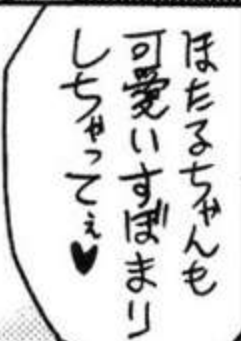 ほたるちゃんも
可愛いすぼまり
しちゃってぇ♥